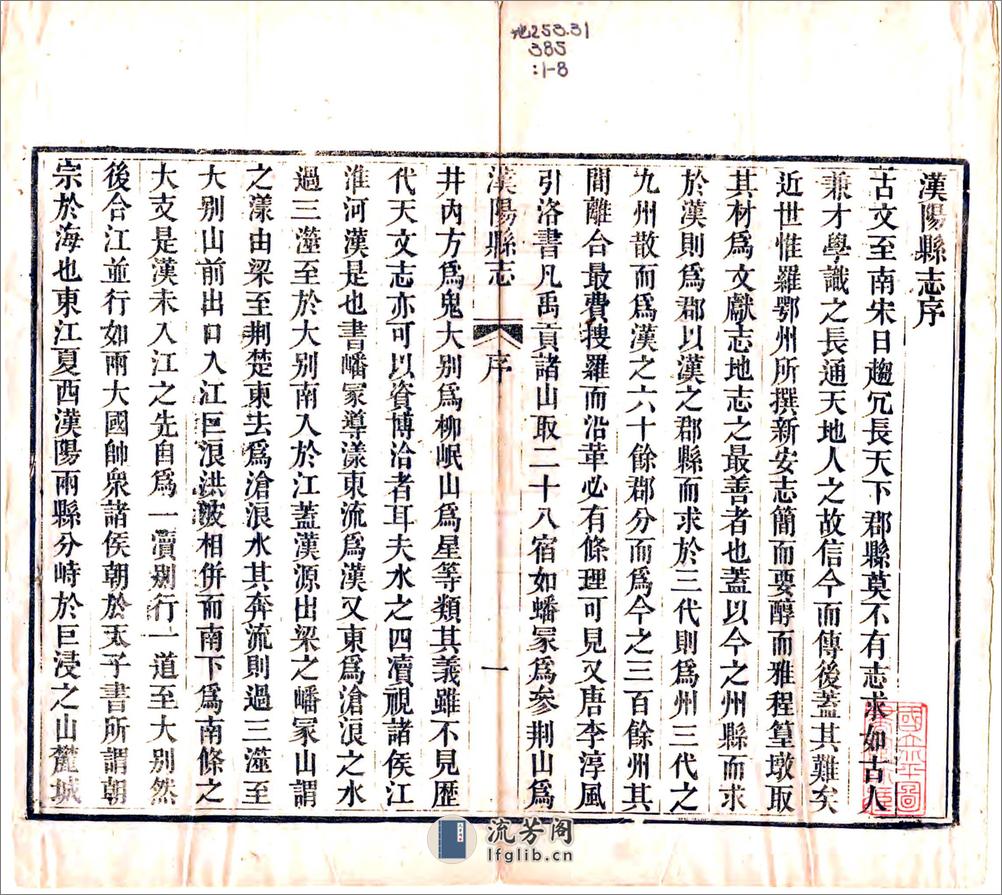 地253.31
385
:1-8
漢陽縣志序
古文至南宋日趨冗長天下郡縣莫不有志求如古人
兼才學識之長通天地人之故信今而傳後蓋其難矣
近世惟羅鄂州所撰新安志簡而要醇而雅程篁墩取
其材爲文獻志地志之最善者也蓋以今之州縣而求
於漢則爲郡以漢之郡縣而求於三代則爲州三代之
九州散而爲漢之六十餘郡分而爲今之三百餘州其
間離合最費搜羅而沿革必有條理可見又唐李淳風
引洛書凡禹貢諸山取二十八宿如嶓冢爲參荆山爲
漢陽縣志 序 一
井內方爲鬼大別爲柳岷山爲星等類其義雖不見歷
代天文志亦可以資博洽者耳夫水之四瀆視諸侯江
淮河漢是也書嶓冢導漾東流爲漢又東爲滄浪之水
過三澨至於大别南入於江蓋漢源出梁之嶓冢山謂
之漾由梁至荆楚東去爲滄浪水其奔流則過三澨至
大别山前出口入江巨浪洪波相併而南下爲南條之
大支是漢未入江之先自爲一瀆别行一道至大别然
後合江並行如兩大國帥衆諸侯朝於天子書所謂朝
宗於海也東江夏西漢陽兩縣分峙於巨浸之山麓城
流芳阁
lfglib.cn